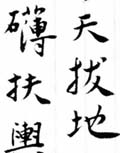 天拔地
礴扶輿